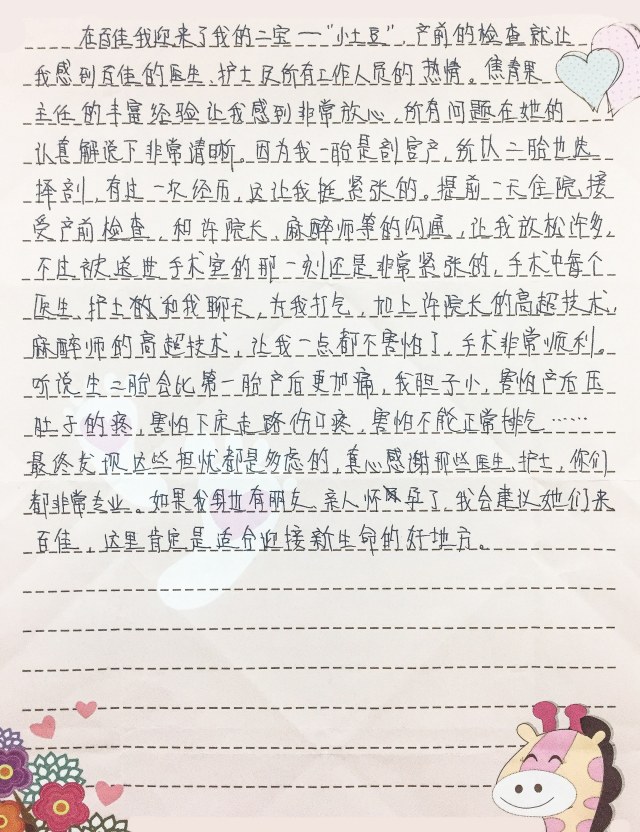 在百佳我迎来了我的二宝一"小土豆"，产前的检查就让
我感到百佳的医生、护士及所有工作人员的热情。焦青果
主任的丰富经验让我感到非常放心，所有问题在她的
认真解说下非常清晰。因为我一胎是剖宫产，所以二胎也选
择剖，有过一次经历，这让我挺紧张的。提前一天住院，接
受产前检查，和许院长、麻醉师等的沟通，让我放松许多，
不过被送进手术室的那一刻还是非常紧张的，手术中每个
医生、护士都和我聊天，为我打气，加上许院长的高超技术，
麻醉师的高超技术，让我一点都不害怕了，手术非常顺利。
听说生二胎会比第一胎产后更加痛，我胆子小，害怕产后压
肚子的疼，害怕下床走路伤口疼，害怕不能正常排气……
最终发现这些担忧都是多虑的，衷心感谢那些医生、护士，你们
都非常专业。如果我身边有朋友、亲人怀孕了，我会建议她们来
百佳，这里肯定是适合迎接新生命的好地方。